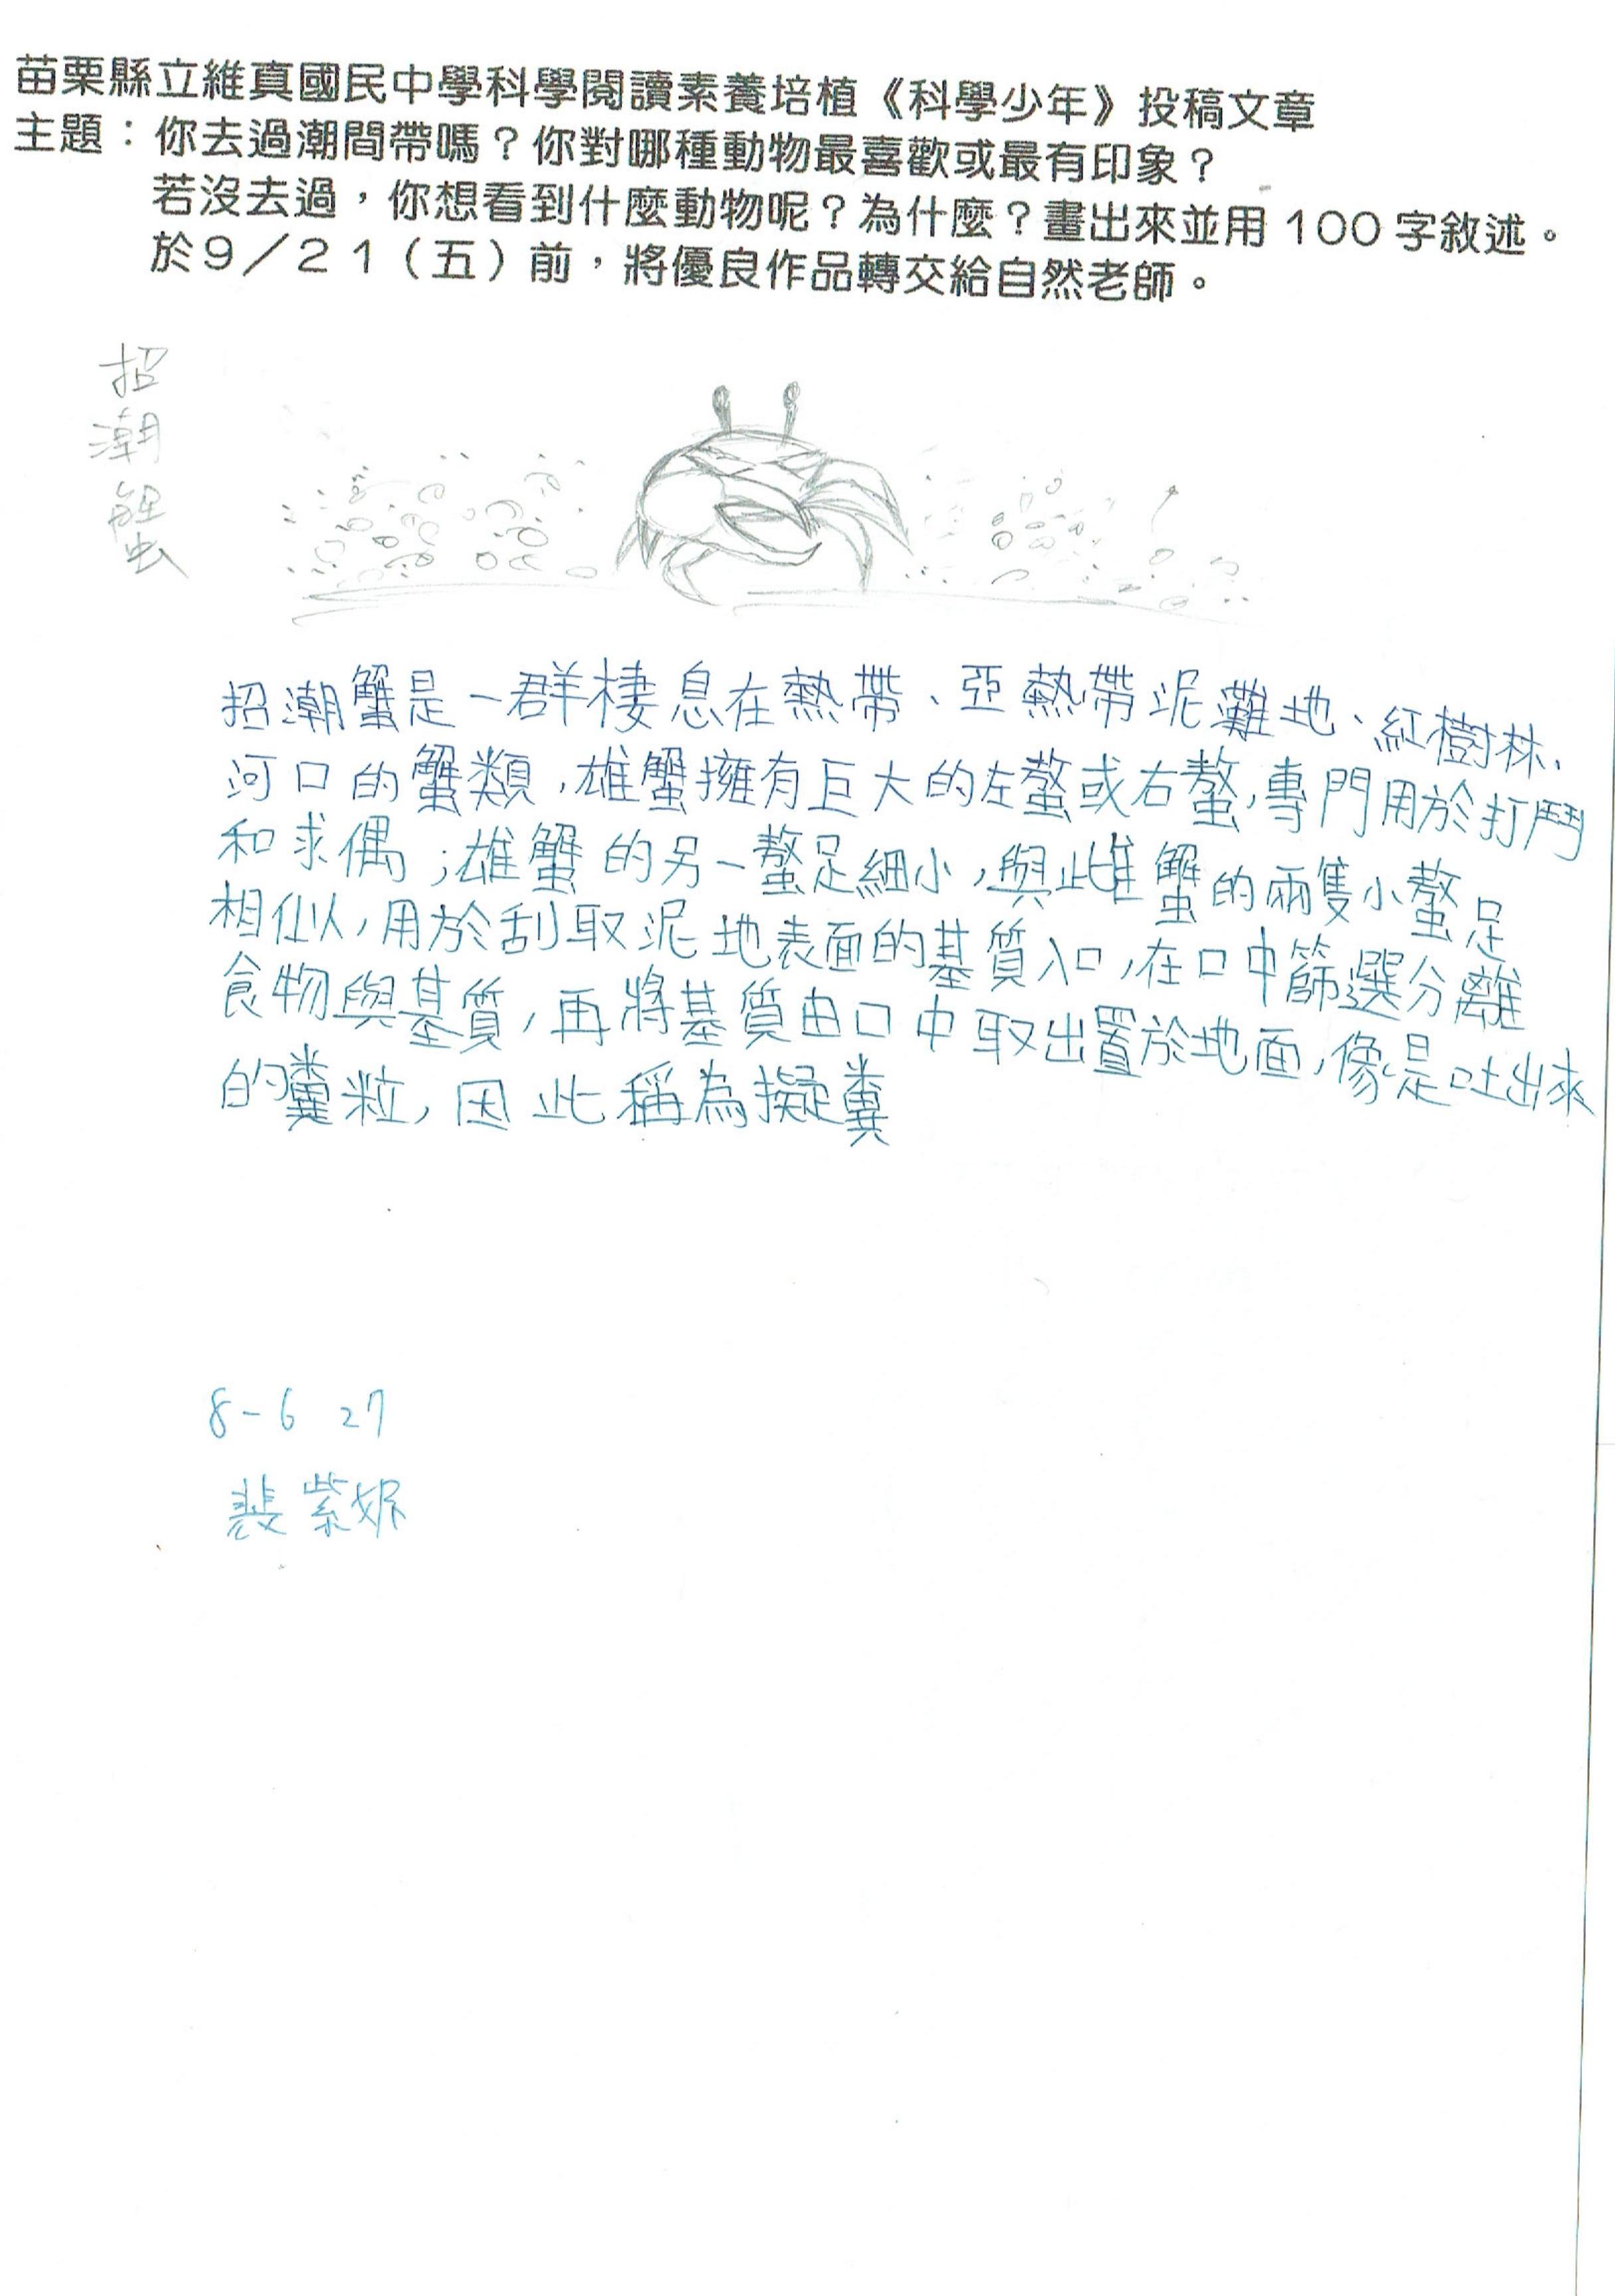 苗栗縣立維真國民中學科學閱讀素養培植《科學少年》投稿文章
主題：你去過潮間帶嗎？你對哪種動物最喜歡或最有印象？
若沒去過，你想看到什麼動物呢？為什麼？畫出來並用100字敘述。
於9／21（五）前，將優良作品轉交給自然老師。
招潮蟹
招潮蟹是一群棲息在熱帶、亞熱帶泥灘地、紅樹林、
河口的蟹類，雄蟹擁有巨大的左螯或右螯，專門用於打鬥
和求偶；雄蟹的另一螯足細小，與雌蟹的兩隻小螯足
相似，用於刮取泥地表面的基質入口，在口中篩選分離
食物與基質，再將基質由口中取出置於地面，像是吐出來
的糞粒，因此稱為擬糞
8-6 27
裴紫妮